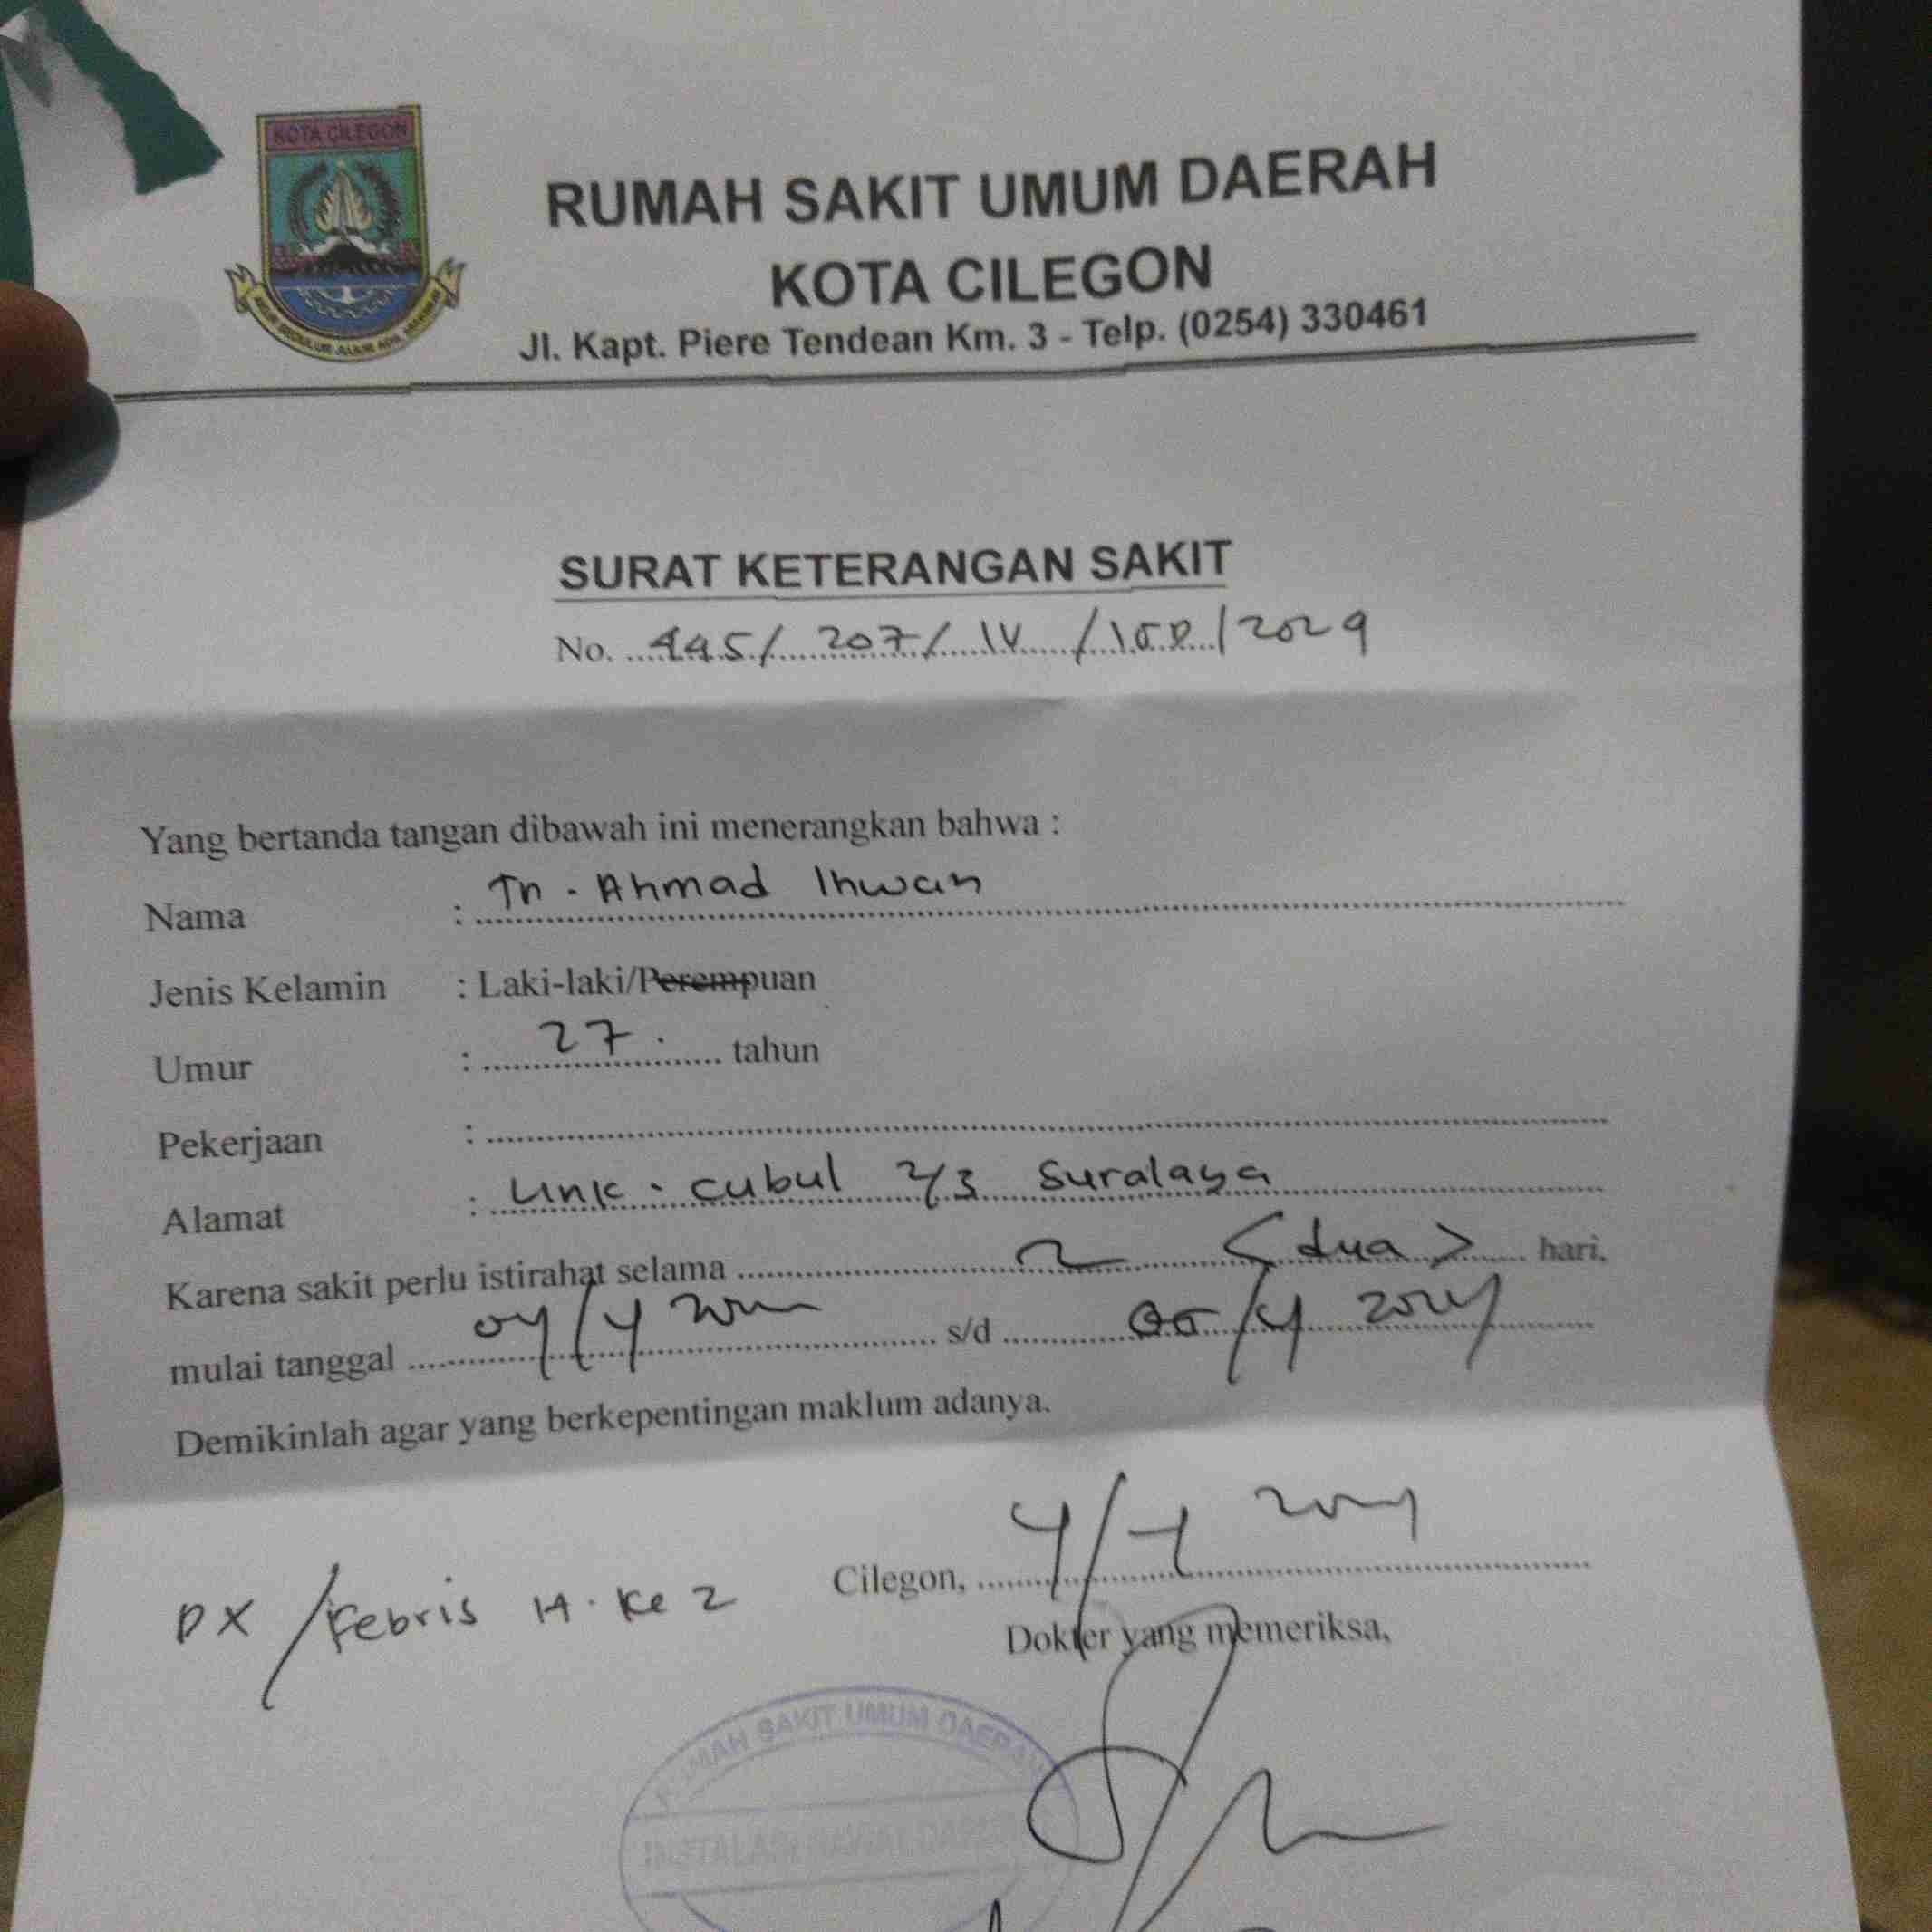 KOTA CILEGON
RUMAH SAKIT UMUM DAERAH
KOTA CILEGON
Jl. Kapt. Piere Tendean Km. 3 - Telp. (0254) 330461
SURAT KETERANGAN SAKIT
No. 445/ 207/ IV /
Yang bertanda tangan dibawah ini menerangkan bahwa :
Nama : Tn. Ahmad Ihwan
Jenis Kelamin : Laki-laki/Perempuan
Umur : 27. tahun
Pekerjaan :
Alamat : Link. cubul 2/3 Suralaya
Karena sakit perlu istirahat selama 2 <dua> hari,
mulai tanggal 04/4 s/d 05/4 2024
Demikinlah agar yang berkepentingan maklum adanya.
Cilegon, 4/4 2024
DX / Febris H. Ke 2
Dokter yang memeriksa,
RUMAH SAKIT UMUM DAERAH
INSTALASI RAWAT DARURAT